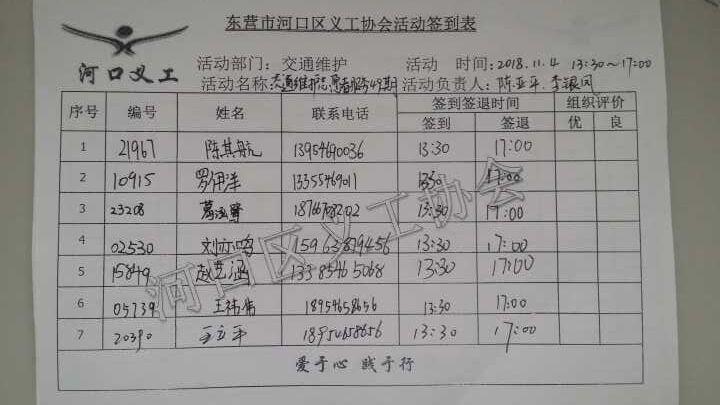 东营市河口区义工协会活动签到表
河口义工
活动部门：交通维护 活动 时间：2018.11.4 13:30～17:00
活动名称：交通维护志愿者服务49期 活动负责人：陈亚平、李银凤
序号 编号 姓名 联系电话 签到签退时间 组织评价
签到 签退 优 良
1 21967 陈其航 13954690036 13:30 17:00
2 10915 罗伊洋 13355469011 13:30 17:00
3 23208 葛涵 18766708202 13:30 17:00
4 02530 刘亦鸣 15963879456 13:30 17:00
5 15849 赵艺涵 13385465068 13:30 17:00
6 05739 王祎伟 18954658656 13:30 17:00
7 20390 王立平 18954658656 13:30 17:00
爱于心 践于行
河口区义工协会